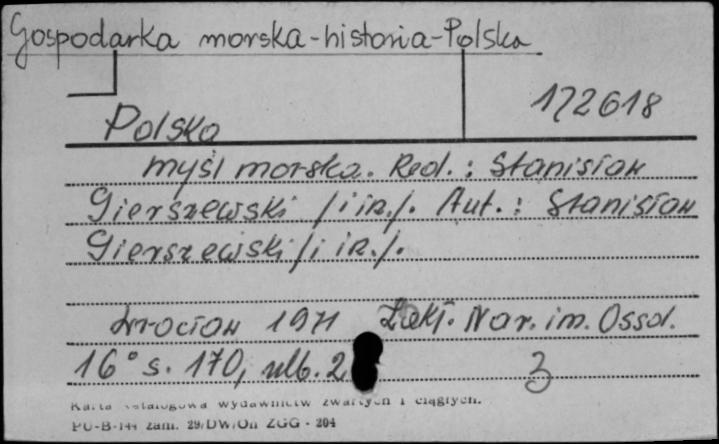 Gospodarka morska-historia-Polska
172618
Polska
myśl morska. Red.: Stanisław
Gierszewski /i in./. Aut.: Stanisław
Gierszewski /i in./.
Wrocław 1971 Zakł. Nar. im. Ossol.
16° s. 170, nlb. 2
3
Karta katalogowa wydawnictw zwartych i ciągłych.
PU-B-144 zam. 29/DW/Oń ZGG - 204